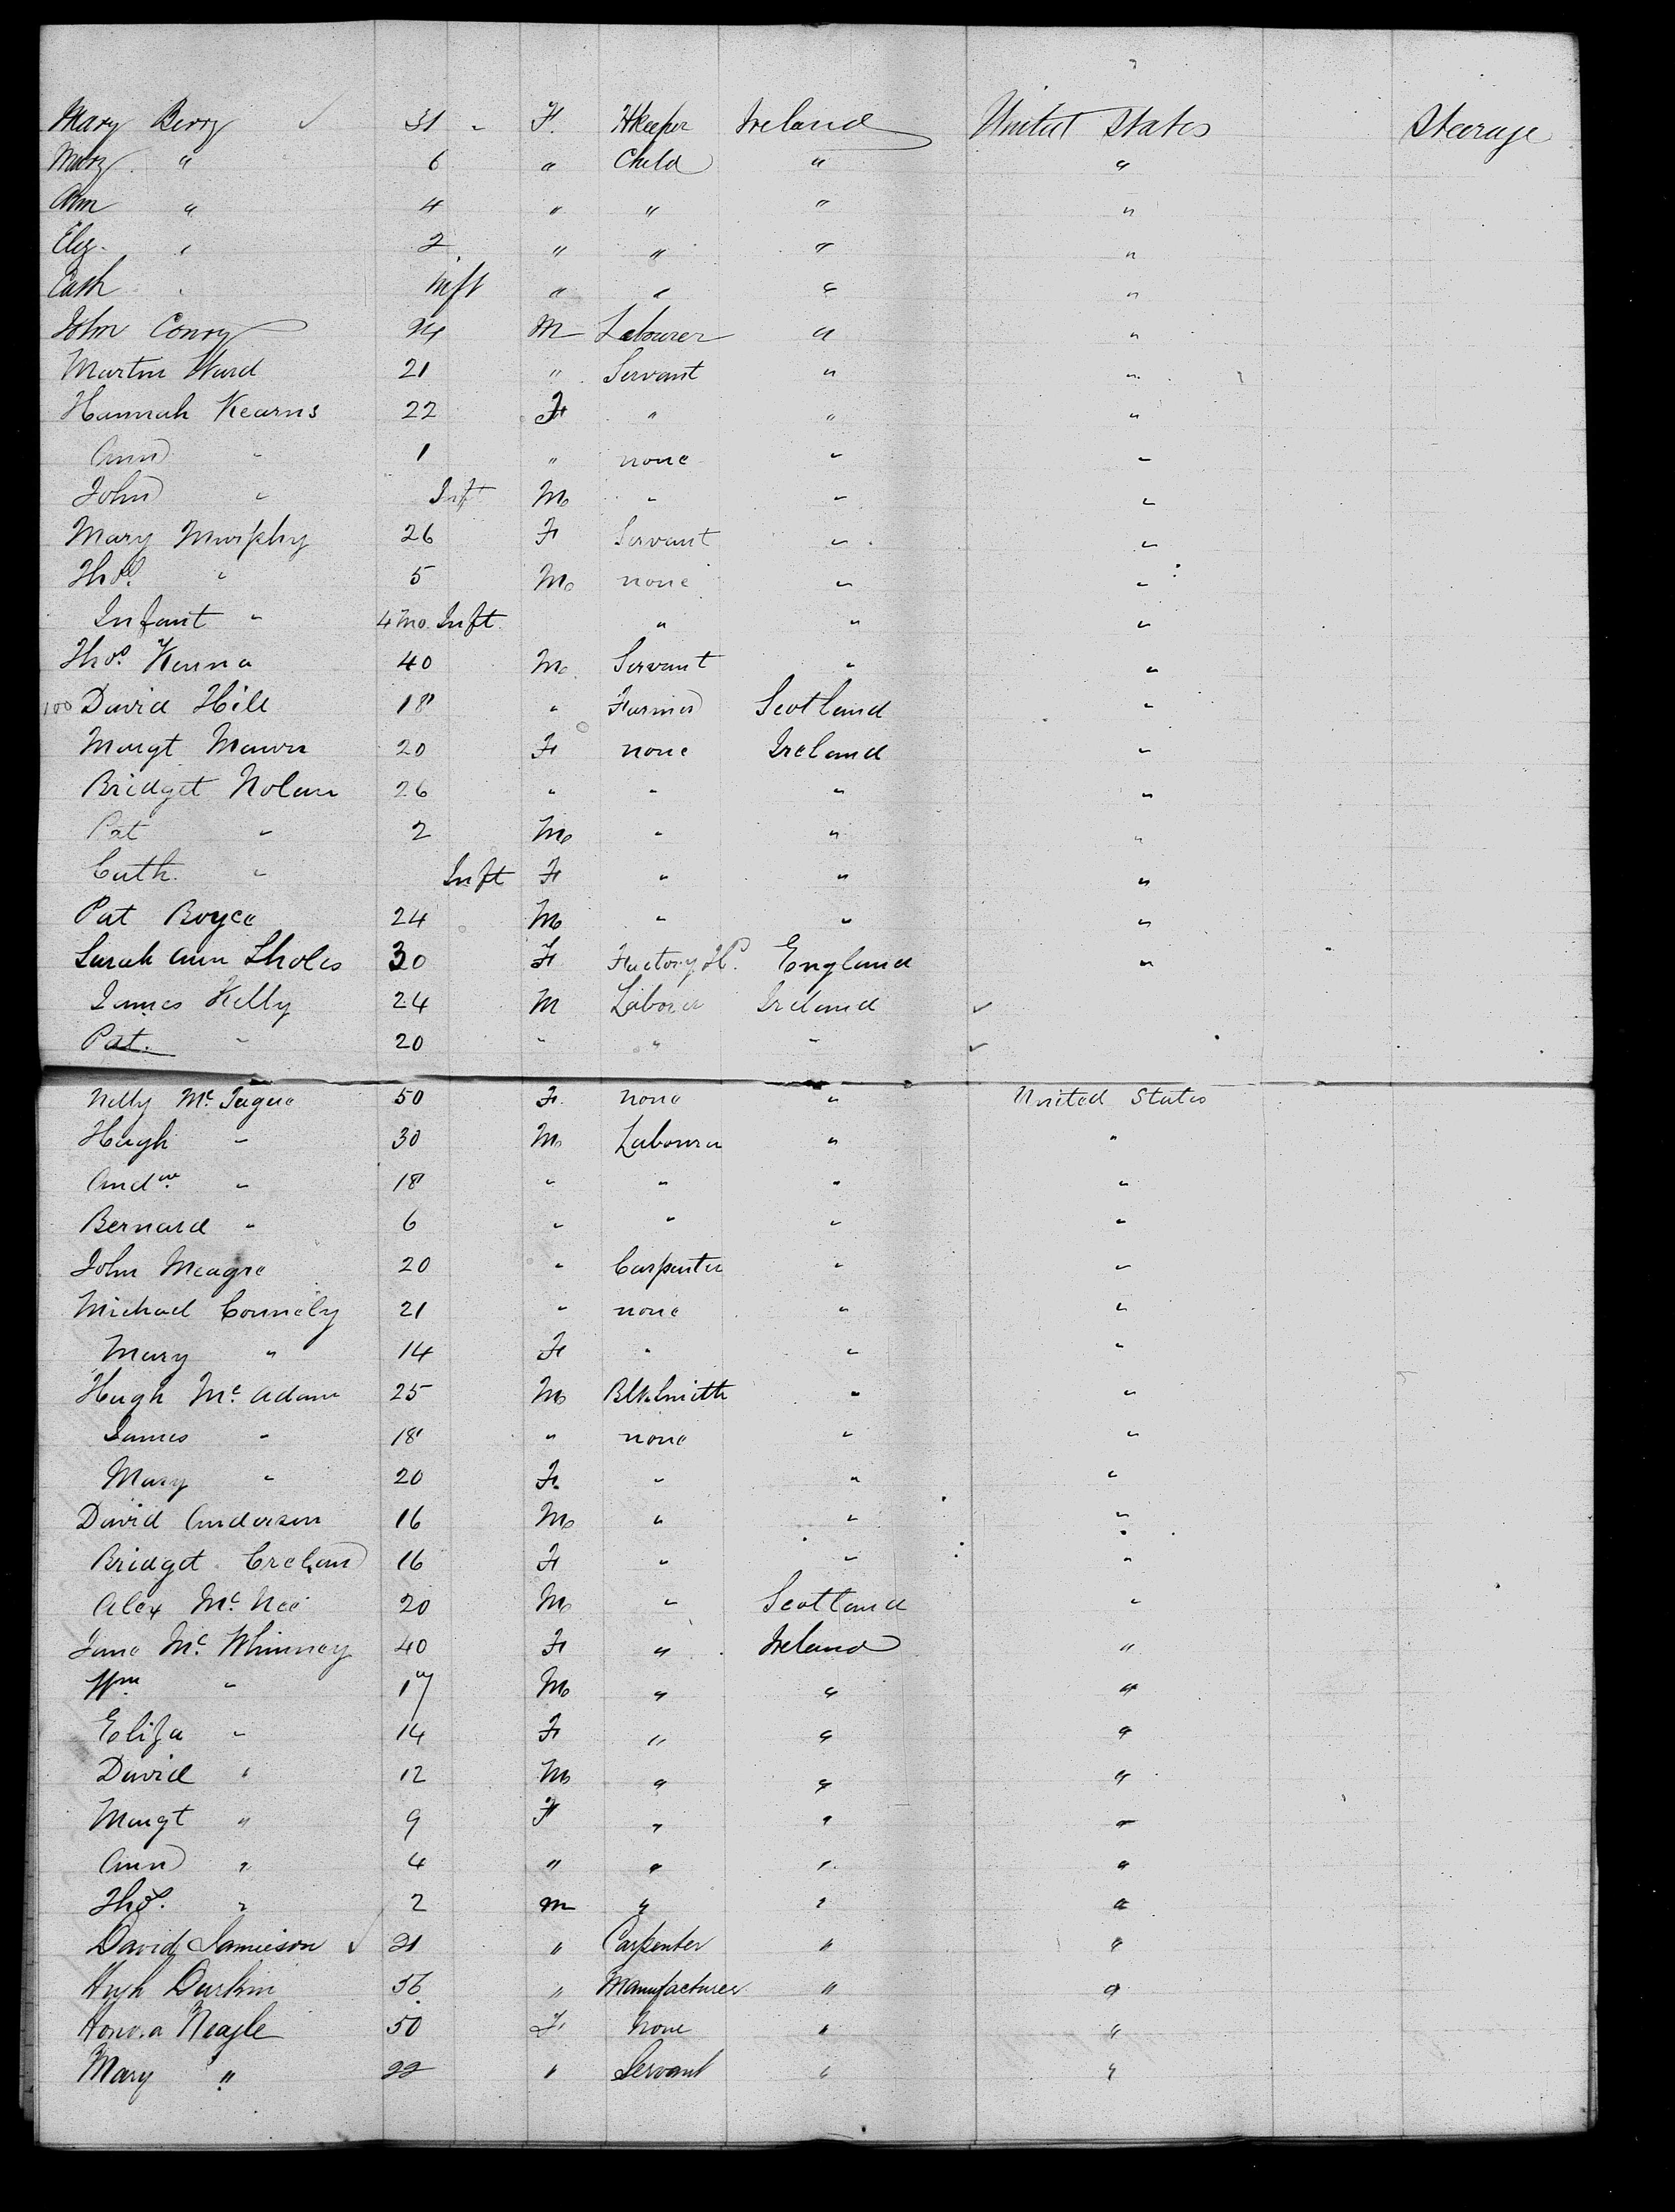 Mary Berry ✓ 31 " F. HKeeper Ireland United States Steerage
Mary " 6 " Child " "
Ann " 4 " " " "
Eliz. " 2 " " " "
Cath " Inft " " " "
John Conry 24 M Labourer " "
Martin Ward 21 " Servant " "
Hannah Kearns 22 F " " "
Ann " 1 " none " "
John " Inft M " " "
Mary Murphy 26 F Servant " "
Thos. " 5 M none " "
Infant " 4 Mo. Inft. " " "
Thos. Kenna 40 M. Servant " "
100 David Hill 18 " Farmer Scotland "
Margt 20 F none Ireland "
Bridget Nolan 26 " " " "
Pat " 2 M " " "
Cath. " Inft F " " "
Pat Boyce 24 M " " "
Sarah Ann Sholes 30 F Factory H. England "
James Kelly 24 M Laborer Ireland ✓
Pat. " 20 " " " ✓
Nelly Mc Tague 50 F. none " United States
Hugh " 30 M Labourer " "
Andw. " 18 " " " "
Bernard " 6 " " " "
John Meagre 20 " Carpenter " "
Michael Connely 21 " none " "
Mary " 14 F " " "
Hugh Mc Adam 25 M Blksmith " "
James " 18 " none " "
Mary " 20 F. " " "
David Anderson 16 M " " "
Bridget Crelan 16 F " " "
Alex Mc Nee 20 M " Scotland "
Jane Mc Whinney 40 F " Ireland "
Wm " 17 M " " "
Eliza " 14 F " " "
David " 12 M " " "
Margt " 9 F " " "
Ann " 4 " " " "
Thos. " 2 m " " "
David Jamieson ✓ 21 " Carpenter " "
Hugh Durkin 36 " Manufacturer " "
Honora Neagle 50 F. None " "
Mary " 22 " Servant " "